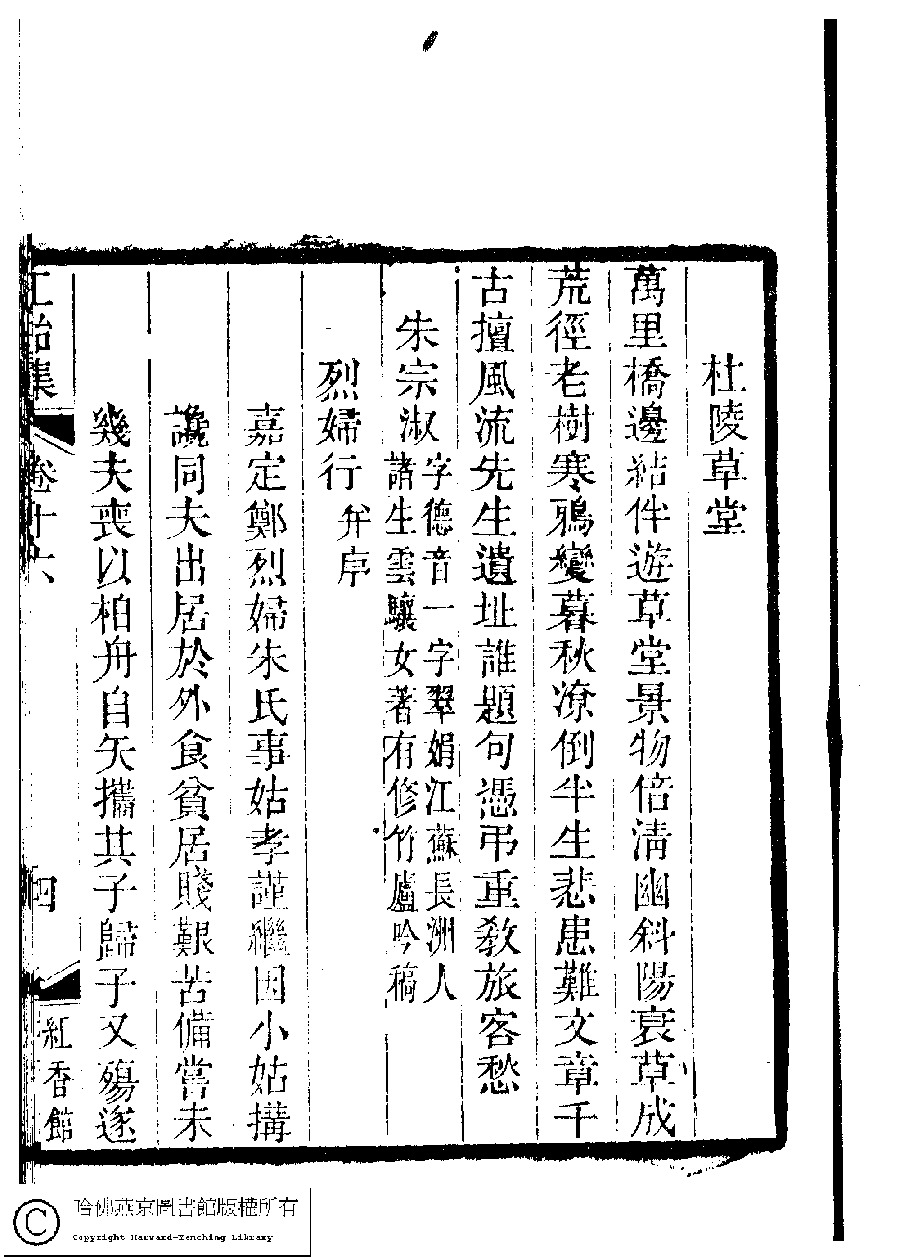 杜陵草堂
萬里橋邊結伴遊草堂景物倍淸幽斜陽衰草成
荒徑老樹寒鴉變暮秋潦倒半生悲患難文章千
古擅風流先生遺址誰題句憑弔重教旅客愁
朱宗淑字德音一字翠娟江蘇長洲人
諸生雲驤女著有修竹廬吟稿
烈婦行幷序
嘉定鄭烈婦朱氏事姑孝謹繼因小姑搆
讒同夫出居於外食貧居賤艱苦備嘗未
幾夫喪以柏舟自矢攜其子歸子又殤遂
卷十六
四
紅香館
哈佛燕京圖書館版權所有
Copyright Harvard-Yenching Library